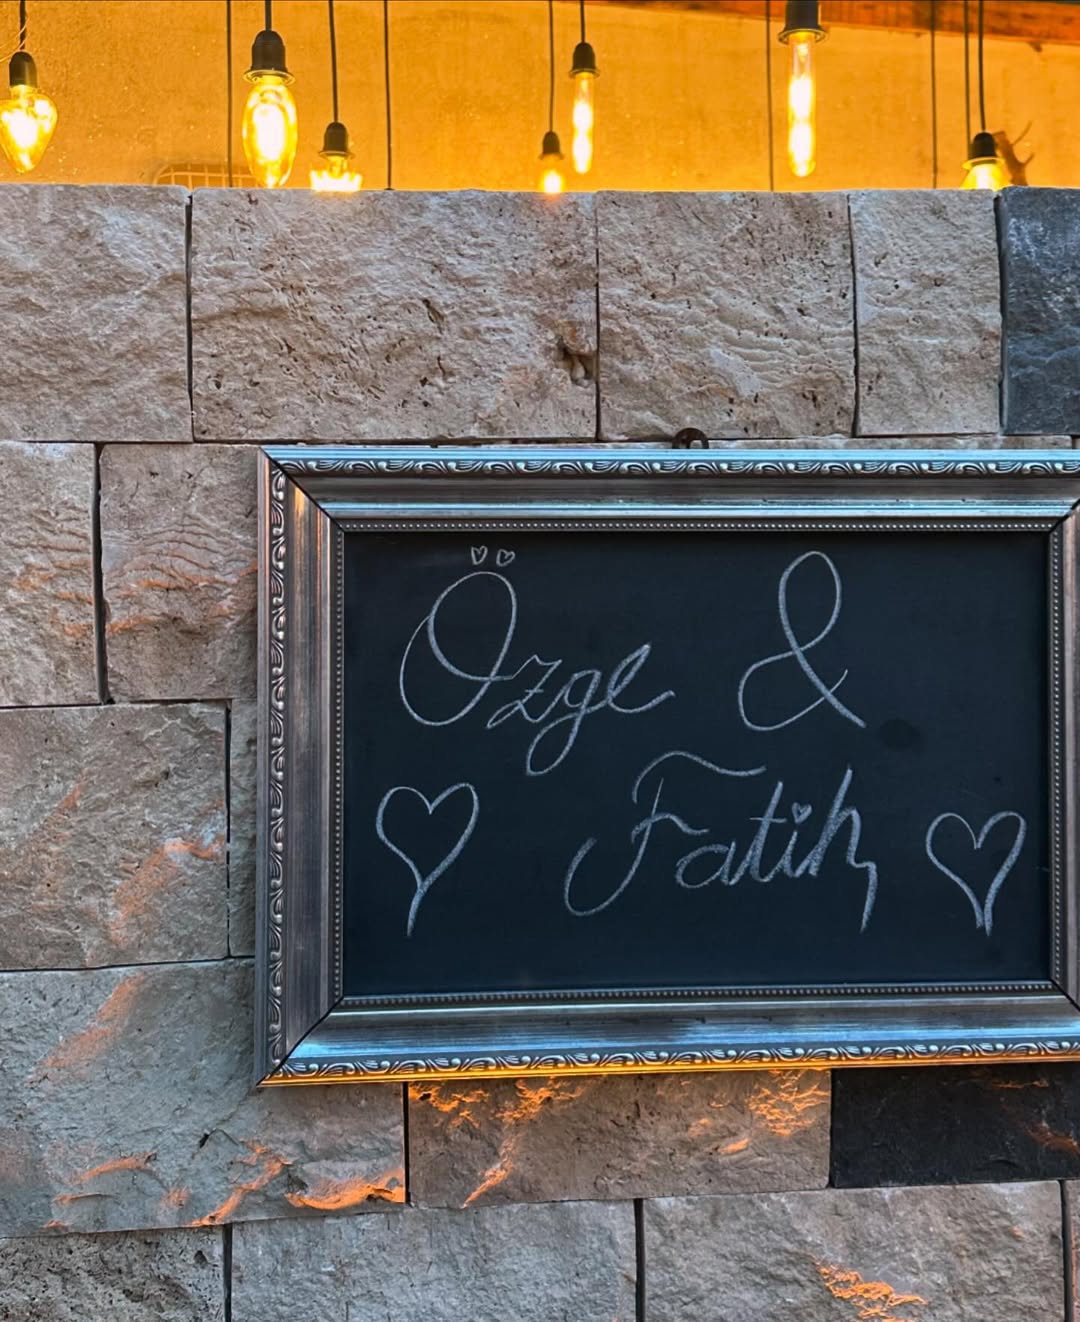 Özge &
Fatih